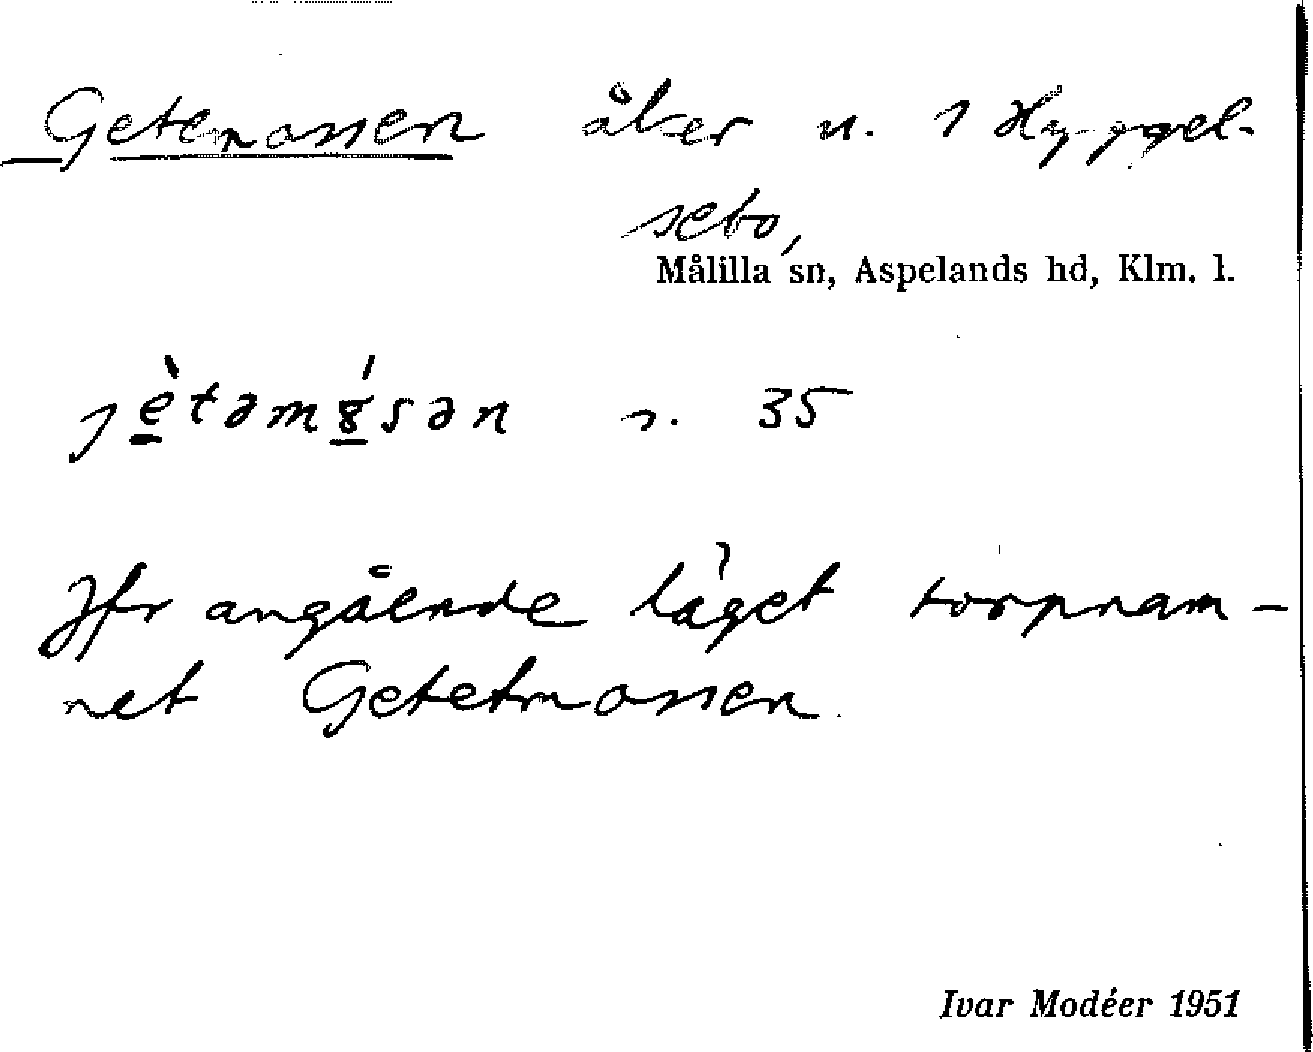 Getemossen åker u. 1 Hyggel-
sebo,
Målilla sn, Aspelands hd, Klm. l.
jètəm8́sən s. 35
Jfr angående läget torpnam-
net Getetmossen.
Ivar Modéer 1951